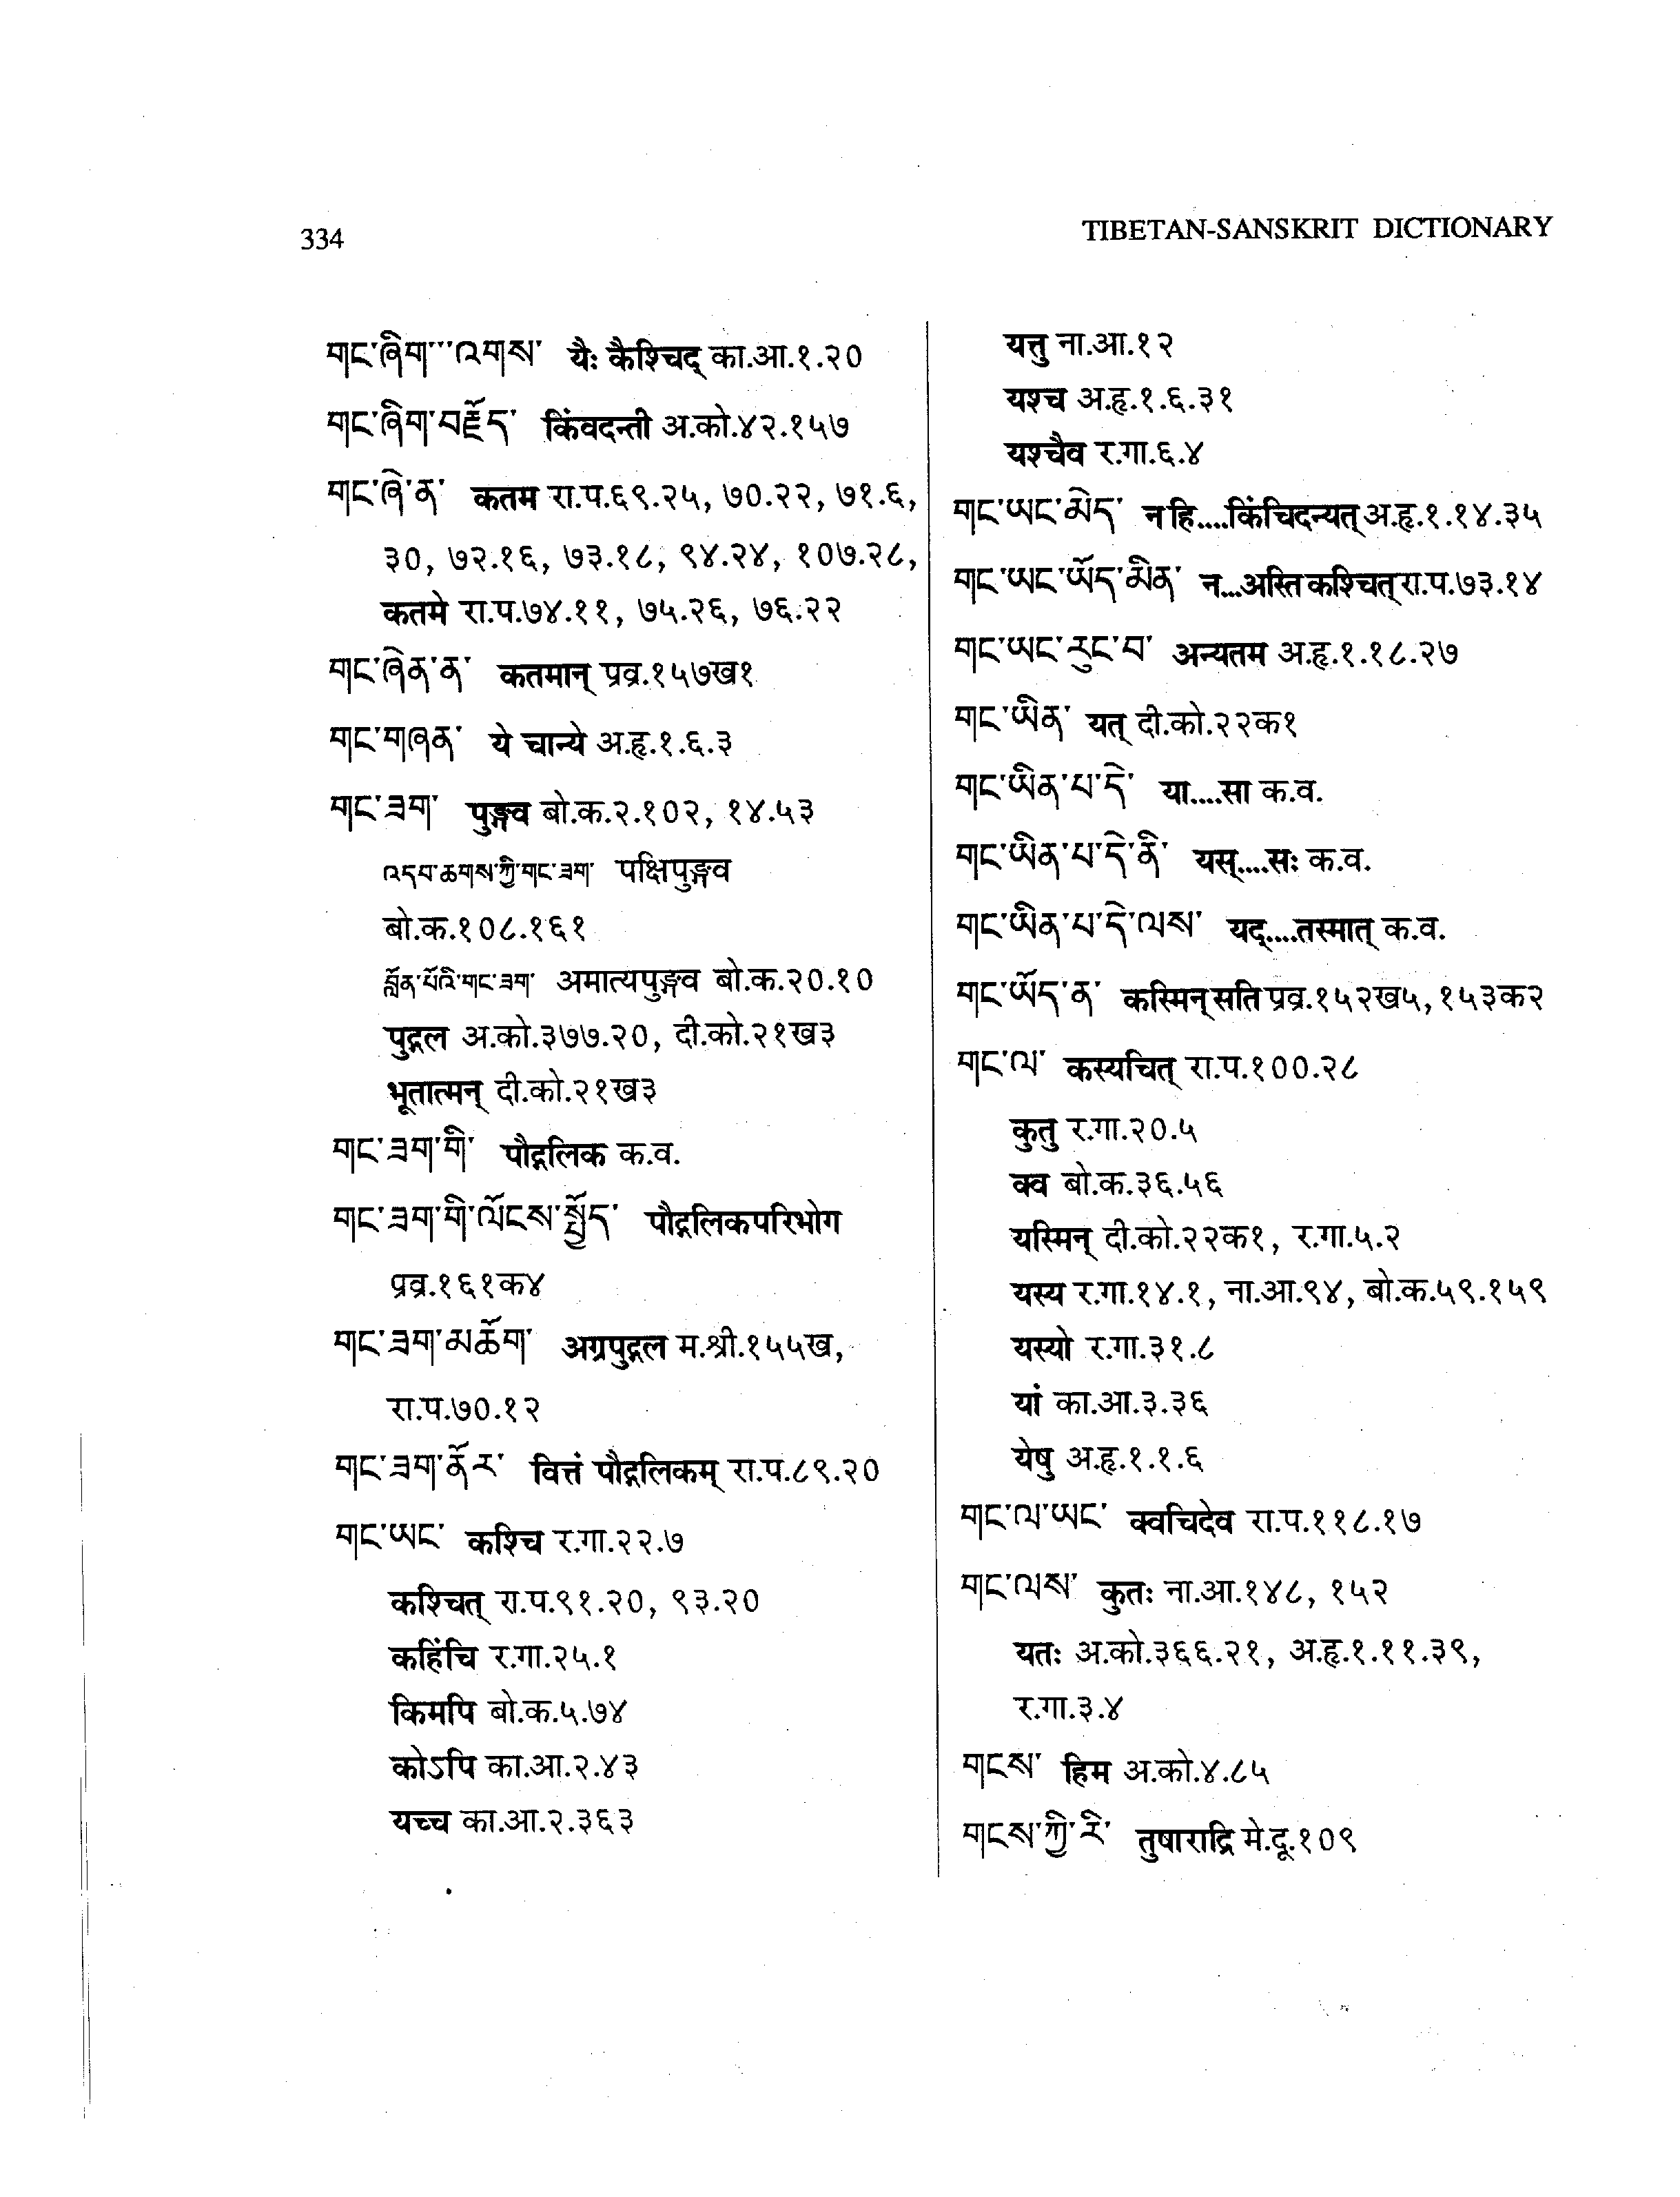 334
TIBETAN-SANSKRIT DICTIONARY
གང་ཞིག་་་འགས་ यैः कैश्चिद् का.आ.१.२०
གང་ཞིག་བརྗོད་ किंवदन्ती अ.को.४२.१५७
གང་ཞེ་ན་ कतम रा.प.६९.२५, ७०.२२, ७१.६,
३०, ७२.१६, ७३.१८, ९४.२४, १०७.२८,
कतमे रा.प.७४.११, ७५.२६, ७६.२२
གང་ཞེན་ན་ कतमान् प्रव्र.१५७ख१
གང་གཞན་ ये चान्ये अ.हृ.१.६.३
གང་ཟག་ पुङ्गव बो.क.२.१०२, १४.५३
འདབ་ཆགས་ཀྱི་གང་ཟག་ पक्षिपुङ्गव
बो.क.१०८.१६१
བློན་པོའི་གང་ཟག་ अमात्यपुङ्गव बो.क.२०.१०
पुद्गल अ.को.३७७.२०, दी.को.२१ख३
भूतात्मन् दी.को.२१ख३
གང་ཟག་གི་ पौद्गलिक क.व.
གང་ཟག་གི་ལོངས་སྤྱོད་ पौद्गलिकपरिभोग
प्रव्र.१६१क४
གང་ཟག་མཆོག་ अग्रपुद्गल म.श्री.१५५ख,
रा.प.७०.१२
གང་ཟག་ནོར་ वित्तं पौद्गलिकम् रा.प.८९.२०
གང་ཡང་ कश्चि र.गा.२२.७
कश्चित् रा.प.९१.२०, ९३.२०
कहिंचि र.गा.२५.१
किमपि बो.क.५.७४
कोऽपि का.आ.२.४३
यच्च का.आ.२.३६३
यत्तु ना.आ.१२
यश्च अ.हृ.१.६.३१
यश्चैव र.गा.६.४
གང་ཡང་མེད་ न हि....किंचिदन्यत् अ.हृ.१.१४.३५
གང་ཡང་ཡོད་མིན་ न...अस्ति कश्चित् रा.प.७३.१४
གང་ཡང་རུང་བ་ अन्यतम अ.हृ.१.१८.२७
གང་ཡིན་ यत् दी.को.२२क१
གང་ཡིན་པ་དེ་ या....सा क.व.
གང་ཡིན་པ་དེ་ནི་ यस्....सः क.व.
གང་ཡིན་པ་དེ་ལས་ यद्....तस्मात् क.व.
གང་ཡོད་ན་ कस्मिन् सति प्रव्र.१५२ख५, १५३क२
གང་ལ་ कस्यचित् रा.प.१००.२८
कुतु र.गा.२०.५
क्व बो.क.३६.५६
यस्मिन् दी.को.२२क१, र.गा.५.२
यस्य र.गा.१४.१, ना.आ.९४, बो.क.५९.१५९
यस्यो र.गा.३१.८
यां का.आ.३.३६
येषु अ.हृ.१.१.६
གང་ལ་ཡང་ क्वचिदेव रा.प.११८.१७
གང་ལས་ कुतः ना.आ.१४८, १५२
यतः अ.को.३६६.२१, अ.हृ.१.११.३९,
र.गा.३.४
གངས་ हिम अ.को.४.८५
གངས་ཀྱི་རི་ तुषाराद्रि मे.दू.१०९